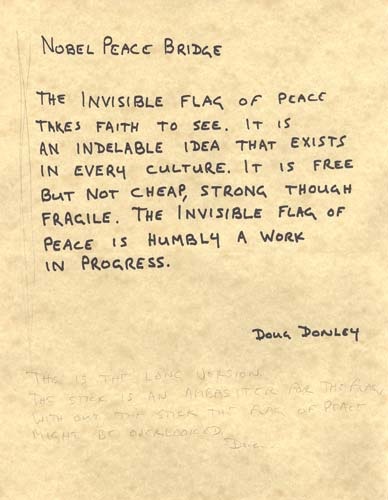 NOBEL PEACE BRIDGE
THE INVISIBLE FLAG OF PEACE
TAKES FAITH TO SEE. IT IS
AN INDELABLE IDEA THAT EXISTS
IN EVERY CULTURE. IT IS FREE
BUT NOT CHEAP, STRONG THOUGH
FRAGILE. THE INVISIBLE FLAG OF
PEACE IS HUMBLY A WORK
IN PROGRESS.
DOUG DONLEY
THIS IS THE LONG VERSION.
THE STICK IS AN FOR THE FLAG,
WITH OUT THE STICK THE FLAG OF PEACE
MIGHT BE OVERLOOKED.
DOUG